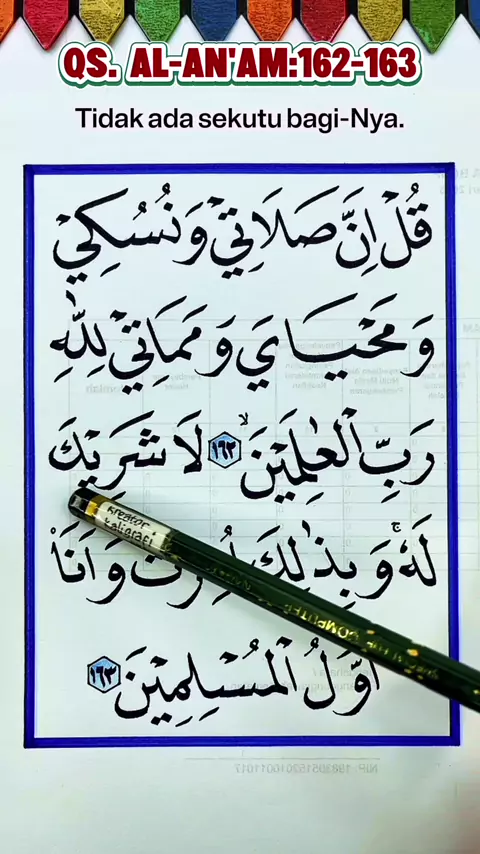 QS. AL-AN'AM:162-163
Tidak ada sekutu bagi-Nya.
قُلْ اِنَّ صَلَاتِيْ وَنُسُكِيْ
وَمَحْيَايَ وَمَمَاتِيْ لِلّٰهِ
رَبِّ الْعٰلَمِيْنَۙ ١٦٢ لَا شَرِيْكَ
لَهٗۚ وَبِذٰلِكَ وَاَنَا۠
اَوَّلُ الْمُسْلِمِيْنَ ١٦٣
Kreator
kaligrafi
COMPUTER